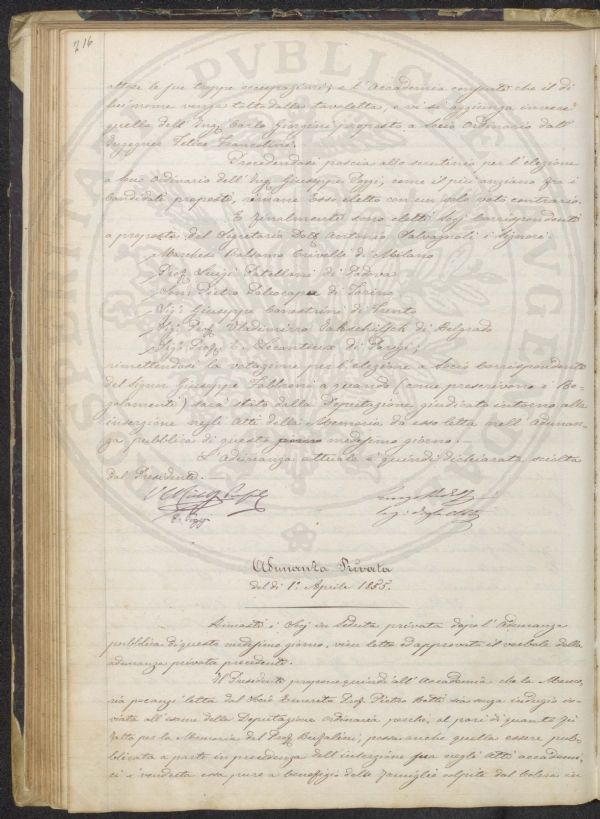 216
attese le sue troppe occupazioni; e l'Accademia consente che il di
lui nome venga tolto dalla tavoletta, e vi si aggiunga invece
quello dell'Ing. Carlo proposto a Socio Ordinario dall'
Ingegner Felice Francolini.
Procedendosi poscia allo scrutinio per l'elezione
a Socio Ordinario dell'Ing. Giuseppe Poggi, come il più anziano fra i
Candidati proposti, rimane Esso eletto con un solo voto contrario.
E finalmente sono eletti Socj Corrispondenti
a proposta del Segretario Dott. Antonio Salvagnoli i Signori
Marchese Balsamo Crivelli di Milano
Prof. Luigi Patellani di Padova
Pietro Paleocapa di Torino
Sig. Giuseppe Canestrini di Trento
Sig. Prof. Vladimirro di Belgrado
Sig. Prof. E. di Parigi;
rimettendosi la votazione per l'elezione a Socio Corrispondente
del Signor Giuseppe Fabbroni a quando (come prescrivono i Re-
golamenti) sarà stato dalla Deputazione giudicato intorno alla
inserzione negli Atti della Memoria da esso letta nell'Adunan-
za pubblica di questo medesimo giorno.—
L'Adunanza attuale è quindi dichiarata sciolta
dal Presidente.—
E. Poggi
Adunanza Privata
del dì 1° Aprile 1855.
Rimasti i Socj in Seduta privata dopo l'Adunanza
pubblica di questo medesimo giorno, vien letto ed approvato il verbale della
adunanza privata precedente.
Il Presidente propone quindi all'Accademia che la Memo-
ria poc'anzi letta dal Socio Emerito Prof. Pietro Betti sia senza indugio in-
viata all'esame della Deputazione ordinaria perchè, al pari di quanto fu
fatto per la Memoria del Prof. Bufalini, possa anche questa essere pub-
blicata a parte in precedenza dell'inserzione sua negli Atti accademi-
ci e venduta essa pure a benefizio delle famiglie colpite dal Colera in